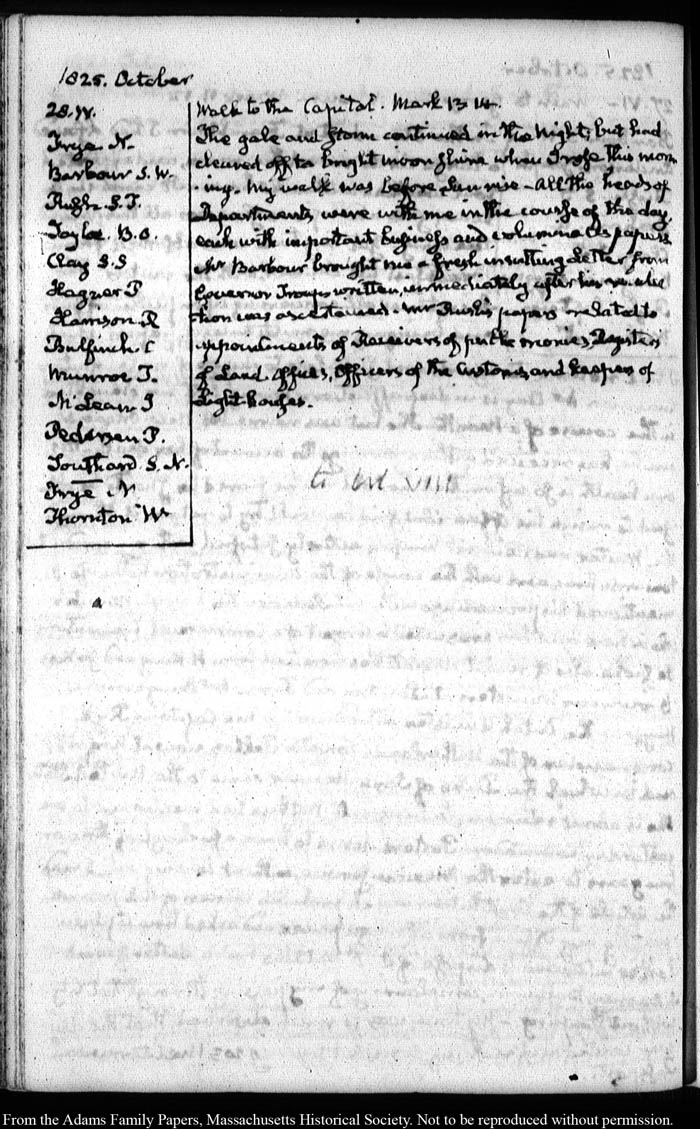 1825. October
28. VI.
Frye N.
Barbour S. W.
Rush S. T.
Tayloe. B. O.
Clay S. S
Hagner P
Harrison R
Bulfinch C
Munroe T.
McLean J
Pedersen P.
Southard S. N.
Frye N
Thornton Wm
Walk to the Capitol. Mark 13. 14.
The gale and storm continued in the Night, but had
cleared off to bright moon shine when I rose this morn
-ing. My walk was before Sun rise - All the heads of
Departments were with me in the course of the day,
each with important business and voluminous papers
Mr Barbour brought me a fresh insulting Letter from
Governor Troup written, immediately after his re-elec
tion was ascertained. Mr Rush's papers related to
appointments of Receivers of public monies, Registers
of Land Offices, Officers of the Customs, and keepers of
Light houses.
From the Adams Family Papers, Massachusetts Historical Society. Not to be reproduced without permission.